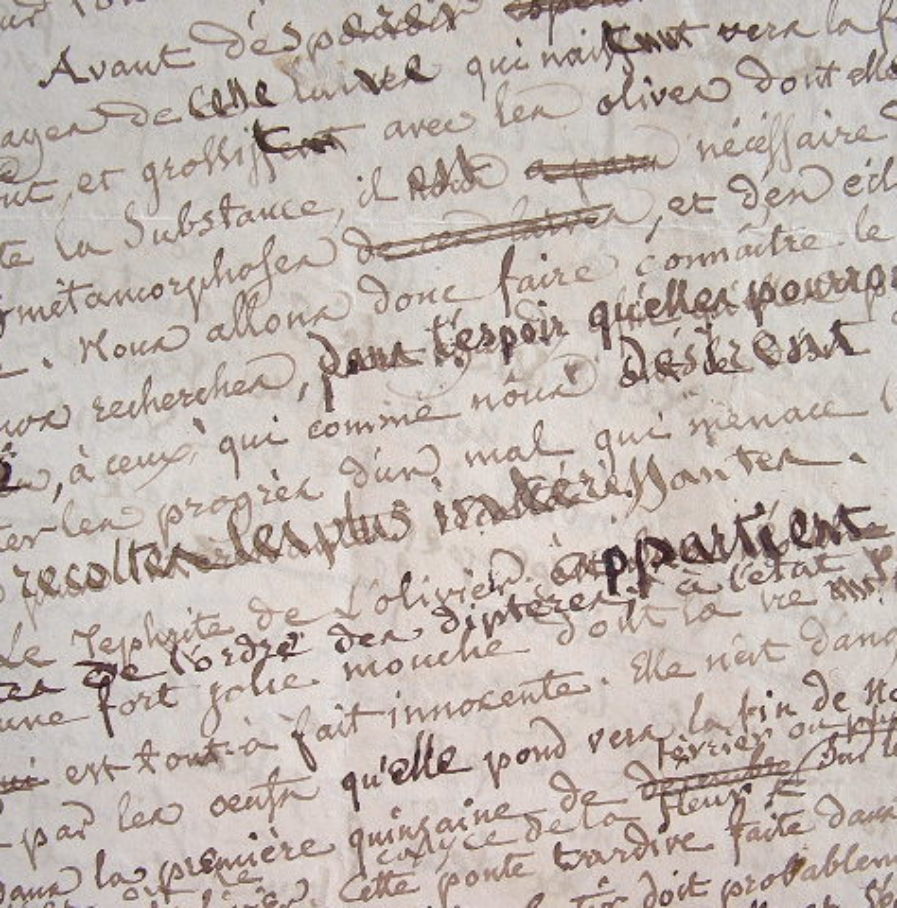 Avant dés
de cette larve qui naissent vers la f
ut, et grossissent avec les olives dont elle
te la Substance, il nécéssaire
métamorphoses de ces larves, et des écl
. Nous allons donc faire connâitre le
nos recherches, dans l'espoir qu'elles pourro
, à ceux qui comme nôus désirent
ter les progrès d'un mal qui menace l
recoltes les plus intéréssantes.
Le Tephrite de L'olivier, appartient
de l'ordre des diptères, à l'état
une fort jolie mouche dont la vie
qui est tout-à-fait innocente. Elle n'est dang
par les oeufs qu'elle pond vers la fin de No
février ou
dans la première quinzaine de decembre, Sur le
calyce de la fleur
Cette ponte tardive faite dans
doit probablem